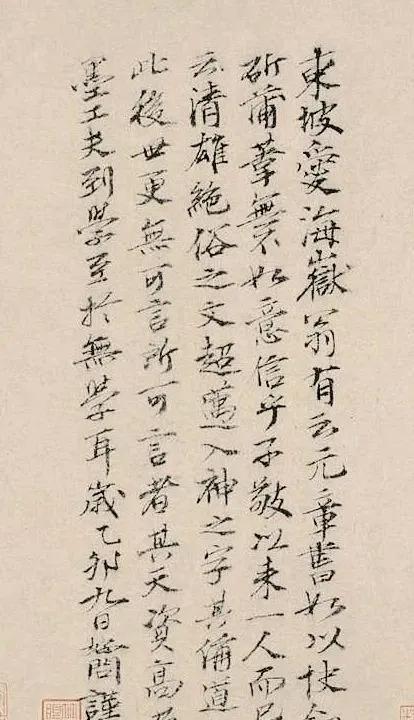 東坡愛海嶽翁有云元章書如以快
斫蒲葦無不如意信乎子敬以來一人而
云清雄絕俗之文超邁入神之字其備道
此後世更無可言所可言者其天資高
墨工夫到學至於無學耳歲乙卯九日謹